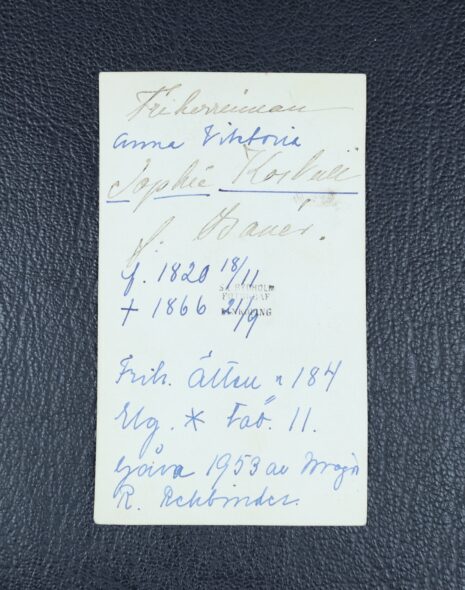 Friherrinnan
Anna Viktoria
Sophie Koskull
f. Banér.
f. 1820 18/11
+ 1866 21/9
Frih. Ätten n 184
Elg. * Tab. 11.
Gåva 1953 av Major
R. Rehbinder.